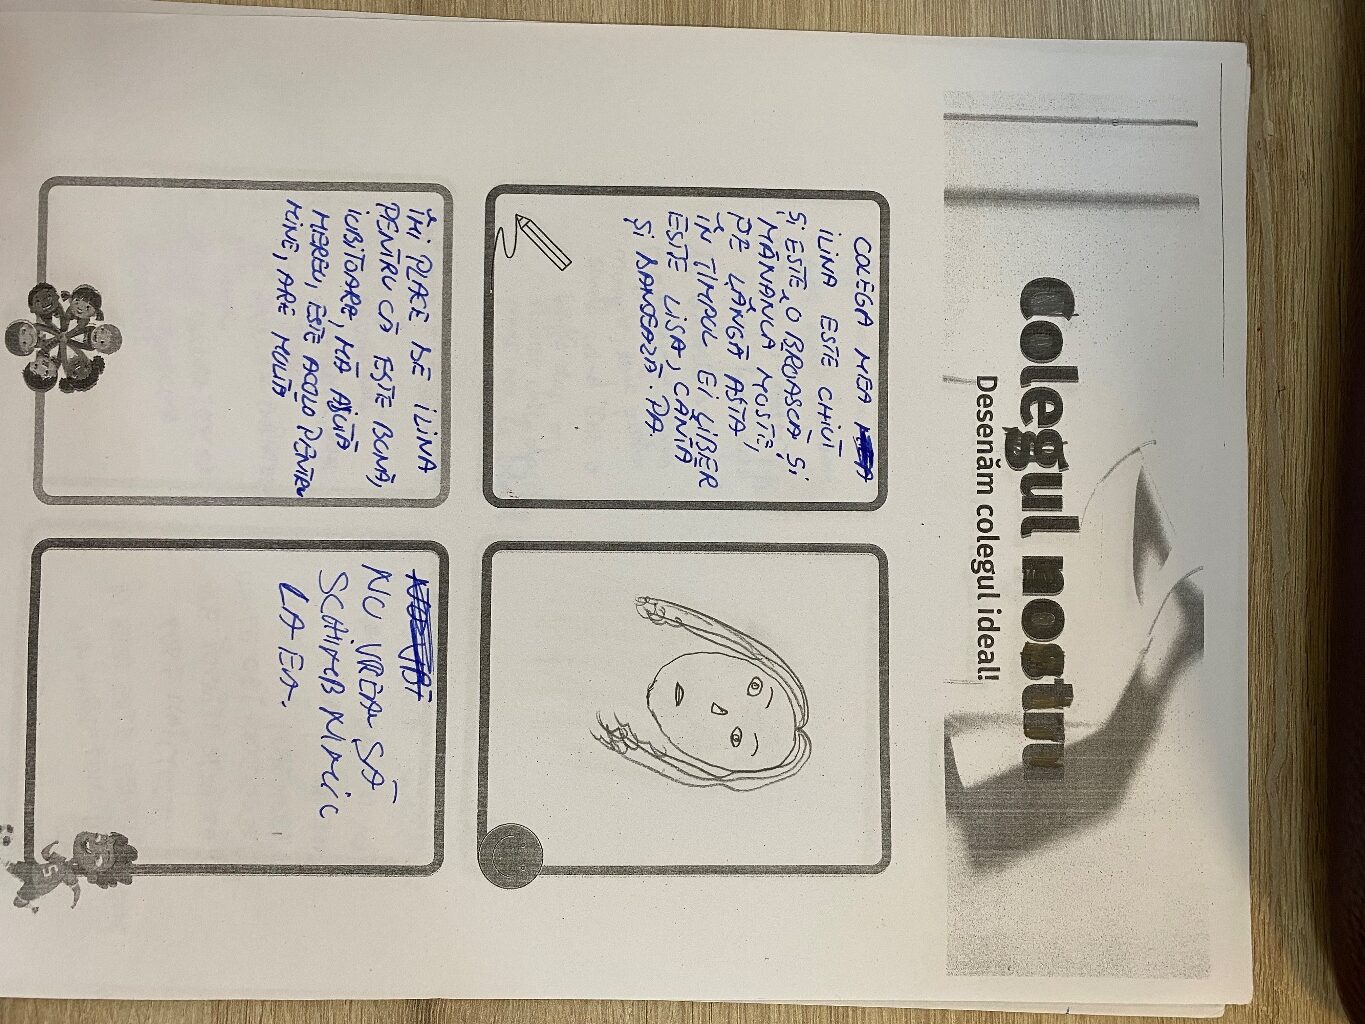 Colegul nostru
Desenăm colegul ideal!
COLEGA MEA
ILINA ESTE CHIUI
ȘI ESTE O BROASCĂ ȘI
MĂNÂNCĂ MUSTE,
PE LÂNGĂ ASTA
ÎN TIMPUL EI LIBER
ESTE LISA, CÂNTĂ
ȘI DANSEAZĂ. PA.
ÎMI PLACE DE ILINA
PENTRU CĂ ESTE BUNĂ,
IUBITOARE, MĂ AJUTĂ
MEREU, ESTE ACOLO PENTRU
MINE, ARE MULTĂ
NU VREAU SĂ
SCHIMB NIMIC
LA EA.